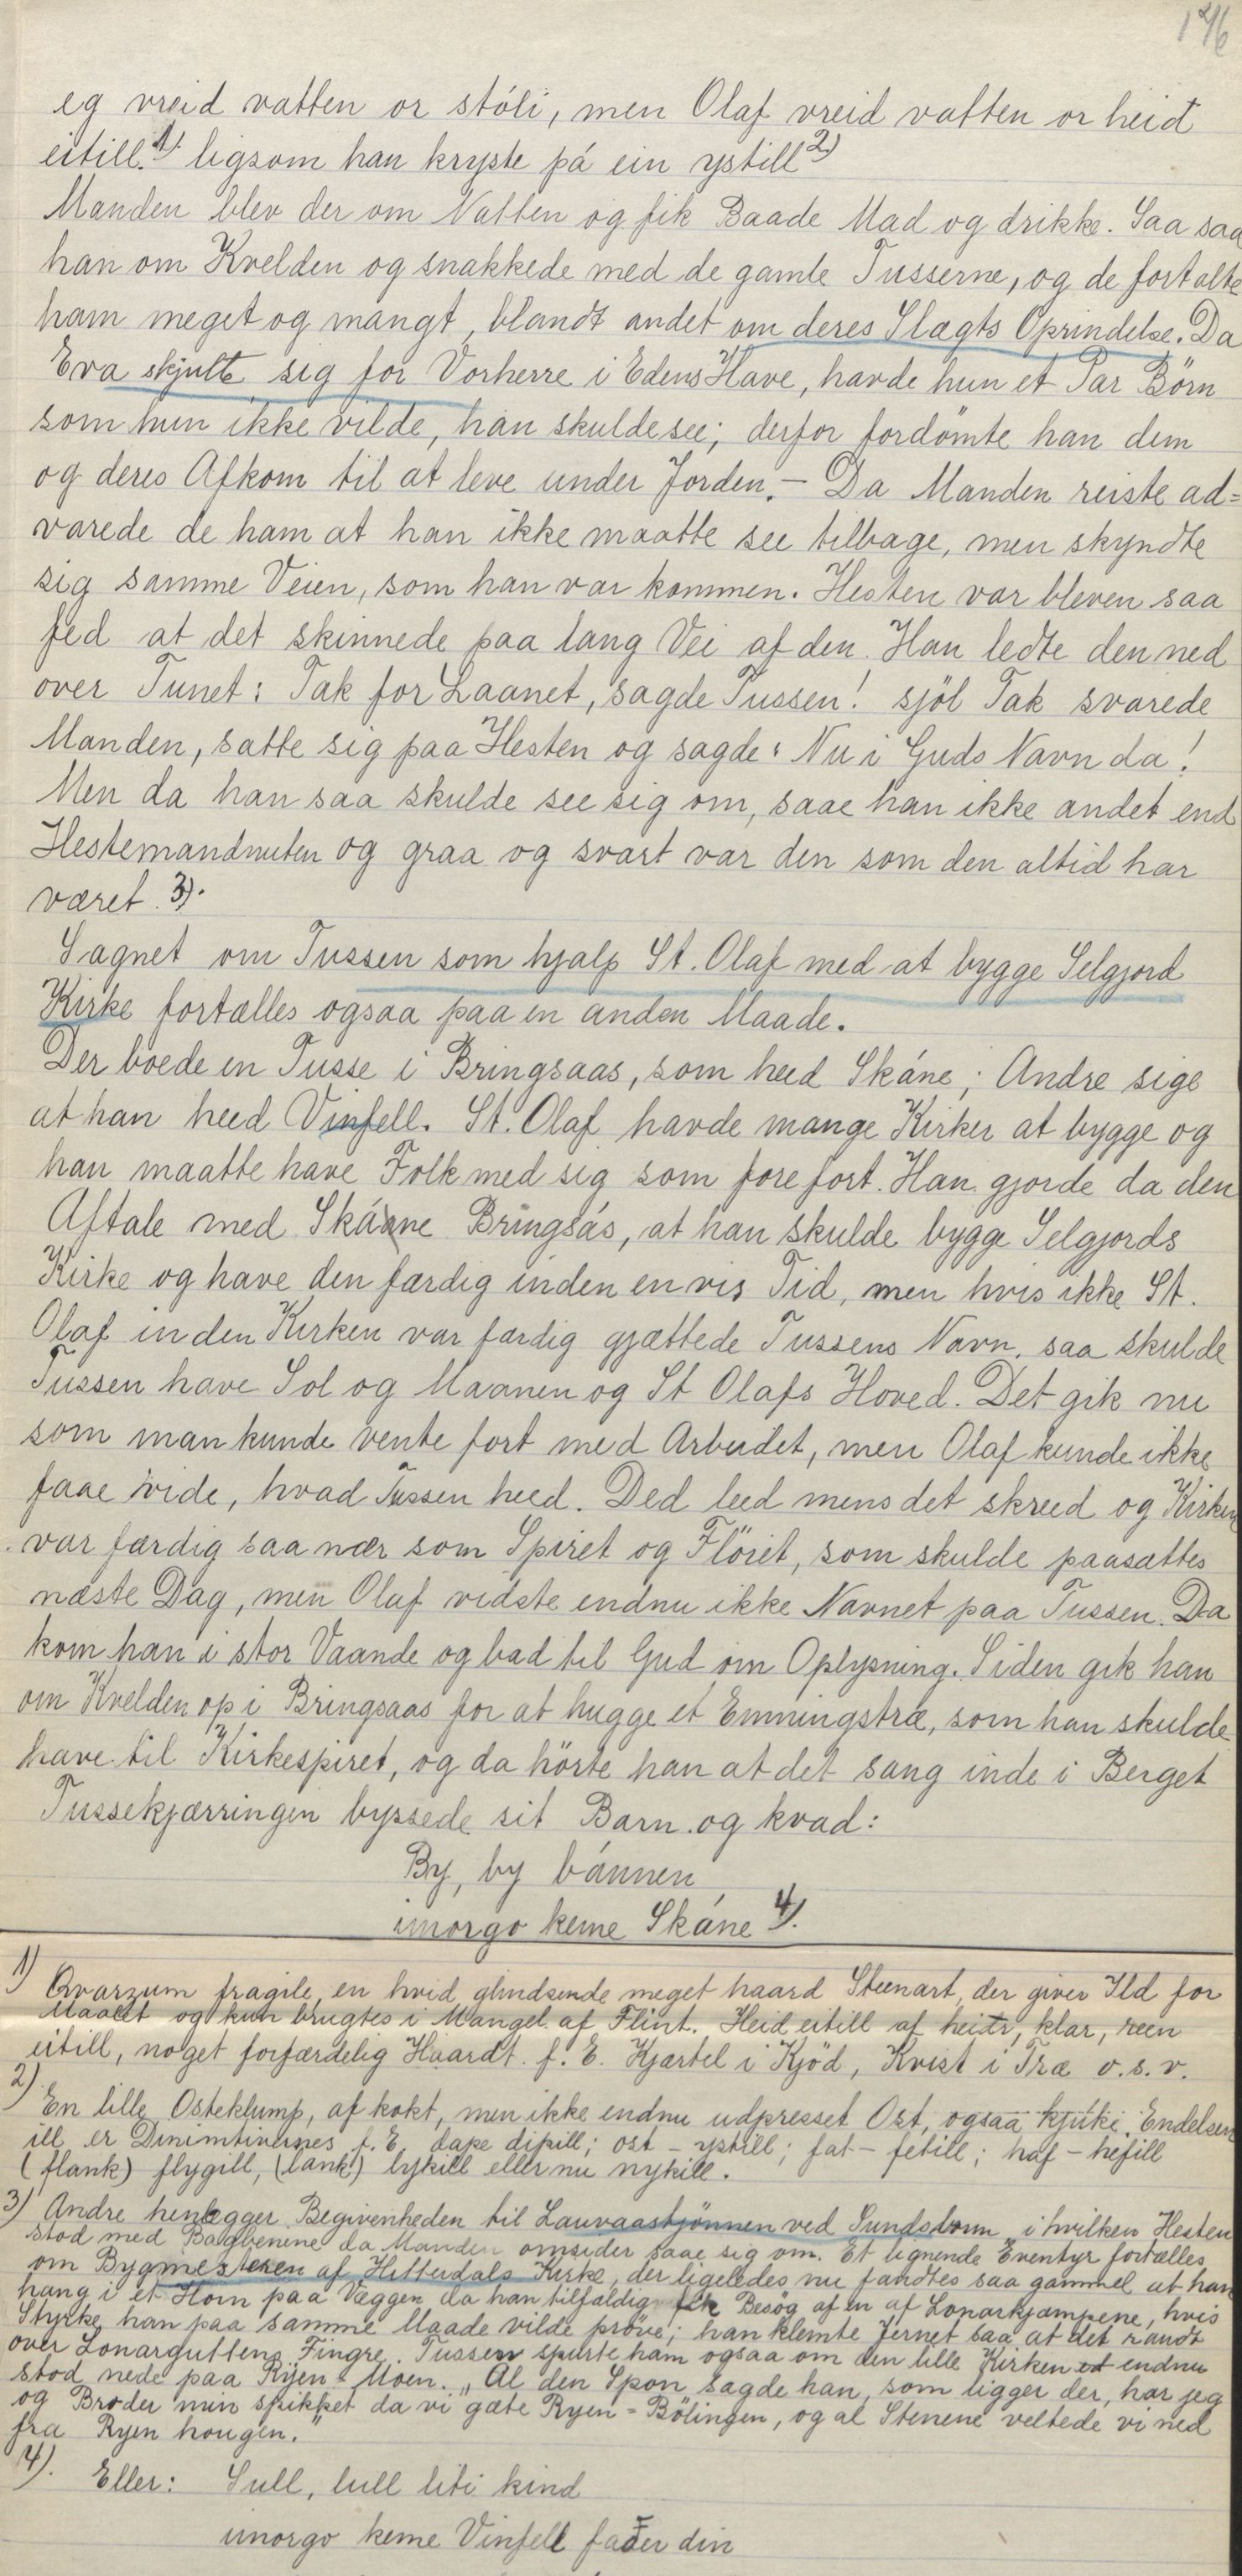 126
eg vreid vatten or stóli, men Olaf vreid vatten or heid
eitill.1) ligsom han kryste pá ein ystill 2)
Manden blev der om Natten og fik Baade Mad og drikke. Saa saa
han om Kvelden og snakkede med de gamle Tusserne, og de fortalte
ham meget og mangt, blandt andet om deres Slægts Oprindelse. Da
Eva skjulte sig for Vorherre i Edens Have, havde hun et Par Börn
som hun ikke vilde, han skulde see; derfor fordömte han dem
og deres Afkom til at leve under Jorden. — Da Manden reiste ad=
varede de ham at han ikke maatte see tilbage, men skyndte
sig samme Veien, som han var kommen. Hesten var bleven saa
fed at det skinnede paa lang Vei af den. Han ledte den ned
over Tunet: Tak for Laanet, sagde Tussen! sjöl Tak svarede
Manden, satte sig paa Hesten og sagde: Nu i Guds Navn da!
Men da han saa skulde see sig om, saae han ikke andet end
Hestemandnuten og graa og svart var den som den altid har
været. 3).
Sagnet om Tussen som hjalp St. Olaf med at bygge Selgjord
Kirke fortælles ogsaa paa en anden Maade.
Der boede en Tusse i Bringsaas, som heed Skáne; Andre sige
at han heed Vinfell. St. Olaf havde mange Kirker at bygge og
han maatte have Folk med sig som fore fort. Han gjorde da den
Aftale med Skáne Bringsás, at han skulde bygge Selgjords
Kirke og have den færdig inden en vis Tid, men hvis ikke St.
Olaf inden Kirken var færdig gjættede Tussens Navn, saa skulde
Tussen have Sol og Maanen og St Olafs Hoved. Det gik nu
som man kunde vente fort med Arbeidet, men Olaf kunde ikke
faae vide, hvad Tussen heed. Ded leed mens det skreed og Kirken
var færdig saa nær som Spiret og Flöiet, som skulde paasættes
næste Dag, men Olaf vidste endnu ikke Navnet paa Tussen. Da
kom han i stor Vaande og bad til Gud om Oplysning. Siden gik han
om Kvelden op i Bringsaas for at hugge et Emningstræ, som han skulde
have til Kirkespiret, og da hörte han at det sang inde i Berget
Tussekjærringen byssede sit Barn og kvad:
By, by bánnen
imorgo keme Skáne 4).
1) Qvarzum fragile, en hvid glindsende meget haard Steenart, der giver Ild for
Staalet og kun brugtes i Mangel af Flint. Heid eitill af heidr, klar, reen
eitill, noget forfærdelig Haardt. f. E. Kjærtel i Kjöd, Kvist i Træ o.s.v.
2) En lille Osteklump, af kokt, men ikke endnu udpresset Ost, ogsaa kjúki. Endelsen
ill er Diminitivernes f. E. dape dipill; ost – ystill; fat – fetill; haf – hefill
(flank) flygill, (lank) lykill eller nu nykill.
3) Andre henlægger Begivenheden til Lauvaastjönnen ved Sundsbarm i hvilken Hesten
stod med Bagbenene da Manden omsider saae sig om. Et lignende Eventyr fortælles
om Bygmesteren af Hitterdals Kirke, der ligeledes nu fandtes saa gammel at han
hang i et Horn paa Væggen da han tilfældig fik Besög af en af Lonarkjæmpene, hvis
Styrke han paa samme Maade vilde pröve; han klemte Jernet saa at det randt
over Lonarguttens Fingre. Tussen spurte ham ogsaa om den lille Kirken endnu
stod nede paa Ryen-Moen. „Al den Spon sagde han, som ligger der, har jeg
og Broder min spikket da vi gæte Ryen=Bölingen, og al Stenene veltede vi ned
fra Ryen hougen."
4). Eller: Sull, lull liti kind
imorgo keme Vinfell fader din